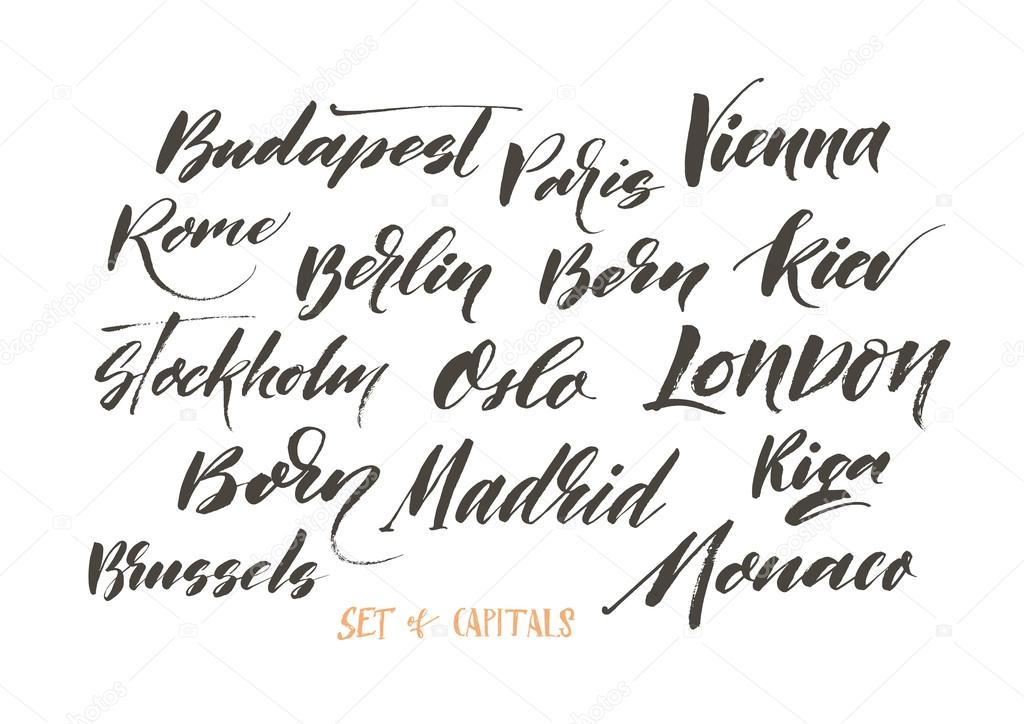 Budapest Paris Vienna
Rome Berlin Bern Kiev
Stockholm Oslo LONDON
Born Madrid Riga
Brussels Monaco
SET of CAPITALS
depositphotos